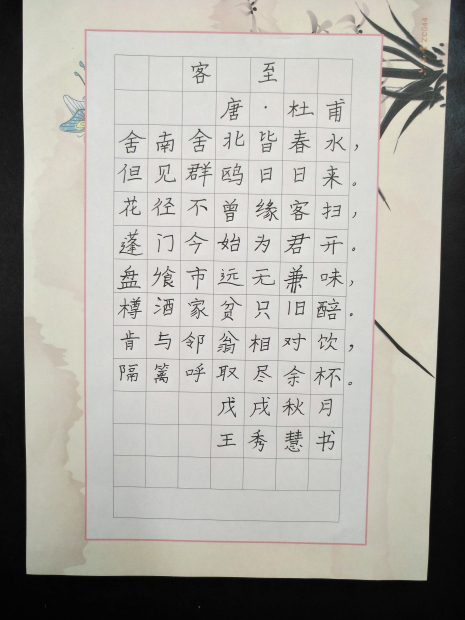 客至
唐·杜甫
舍南舍北皆春水，
但见群鸥日日来。
花径不曾缘客扫，
蓬门今始为君开。
盘飧市远无兼味，
樽酒家贫只旧醅。
肯与邻翁相对饮，
隔篱呼取尽余杯。
戊戌秋月
王秀慧书